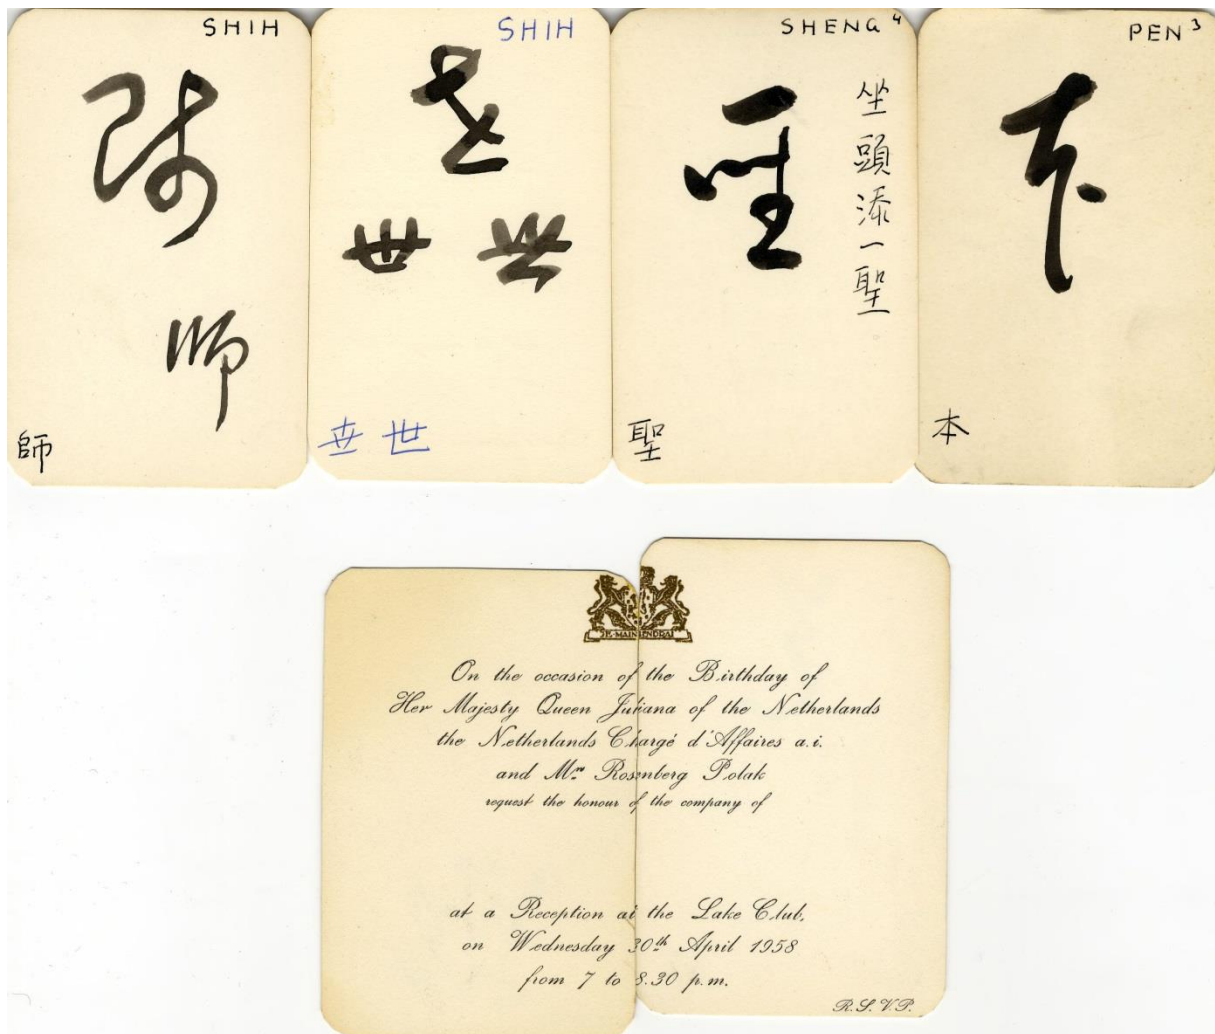 SHIH
師
師
師
SHIH
世
世
世
世
世
SHENG 4
聖
坐頭添一聖。
聖
PEN 3
本
本
JE MAINTIENDRAI
On the occasion of the Birthday of
Her Majesty Queen Juliana of the Netherlands
the Netherlands Chargé d'Affaires a.i.
and Mrs Rosenberg Polak
request the honour of the company of
at a Reception at the Lake Club,
on Wednesday 30th April 1958
from 7 to 8.30 p.m.
R.S.V.P.